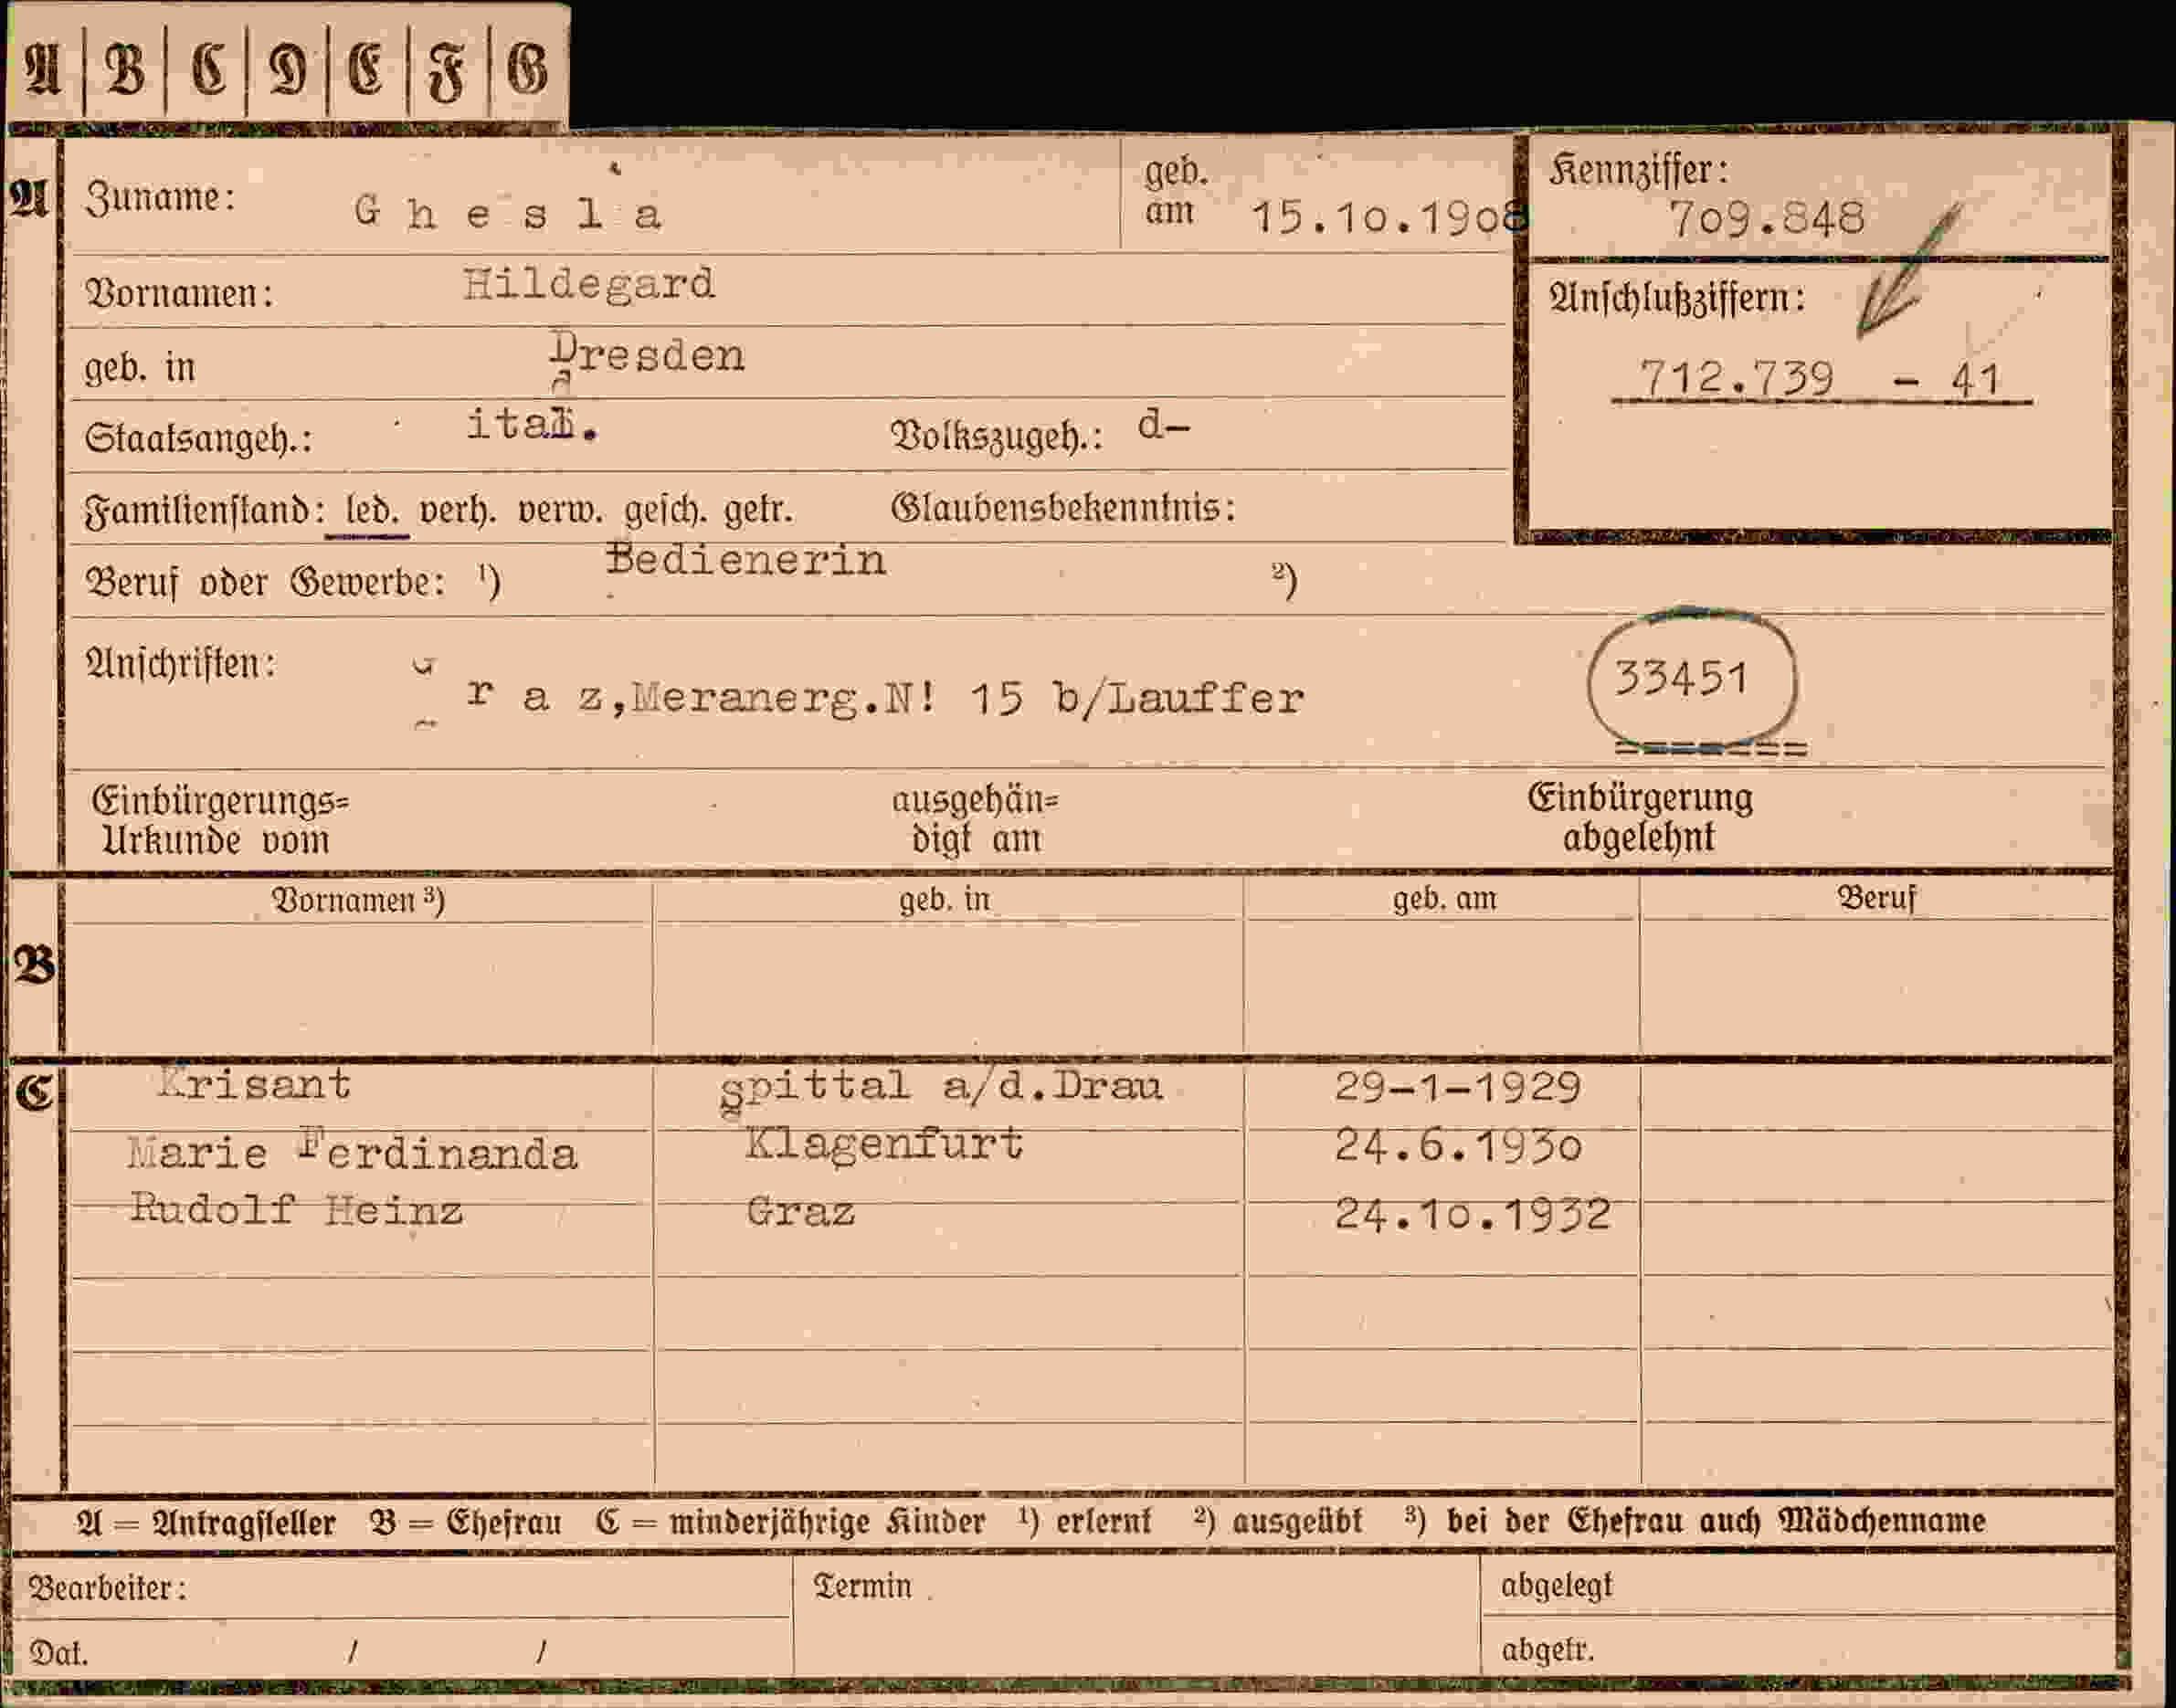 A | B | C | D | E | F | G
A Zuname: Ghesla geb. am 15.10.1908 Kennziffer: 709.848
Vornamen: Hildegard
geb. in Dresden
Anschlußziffern:
712.739 - 41
Staatsangeh.: ital. Volkszugeh.: d-
Familienstand: led. verh. verw. gesch. getr. Glaubensbekenntnis:
Beruf oder Gewerbe: ¹) Bedienerin ²)
Anschriften: G r a z,Meranerg.N! 15 b/Lauffer 33451
=======
Einbürgerungs= ausgehän= Einbürgerung
Urkunde vom digt am abgelehnt
Vornamen ³) geb. in geb. am Beruf
B
C Krisant Spittal a/d.Drau 29-1-1929
Marie Ferdinanda Klagenfurt 24.6.1930
Rudolf Heinz Graz 24.10.1932
A = Antragsteller B = Ehefrau C = minderjährige Kinder ¹) erlernt ²) ausgeübt ³) bei der Ehefrau auch Mädchenname
Bearbeiter: Termin abgelegt
Dat. / / abgetr.